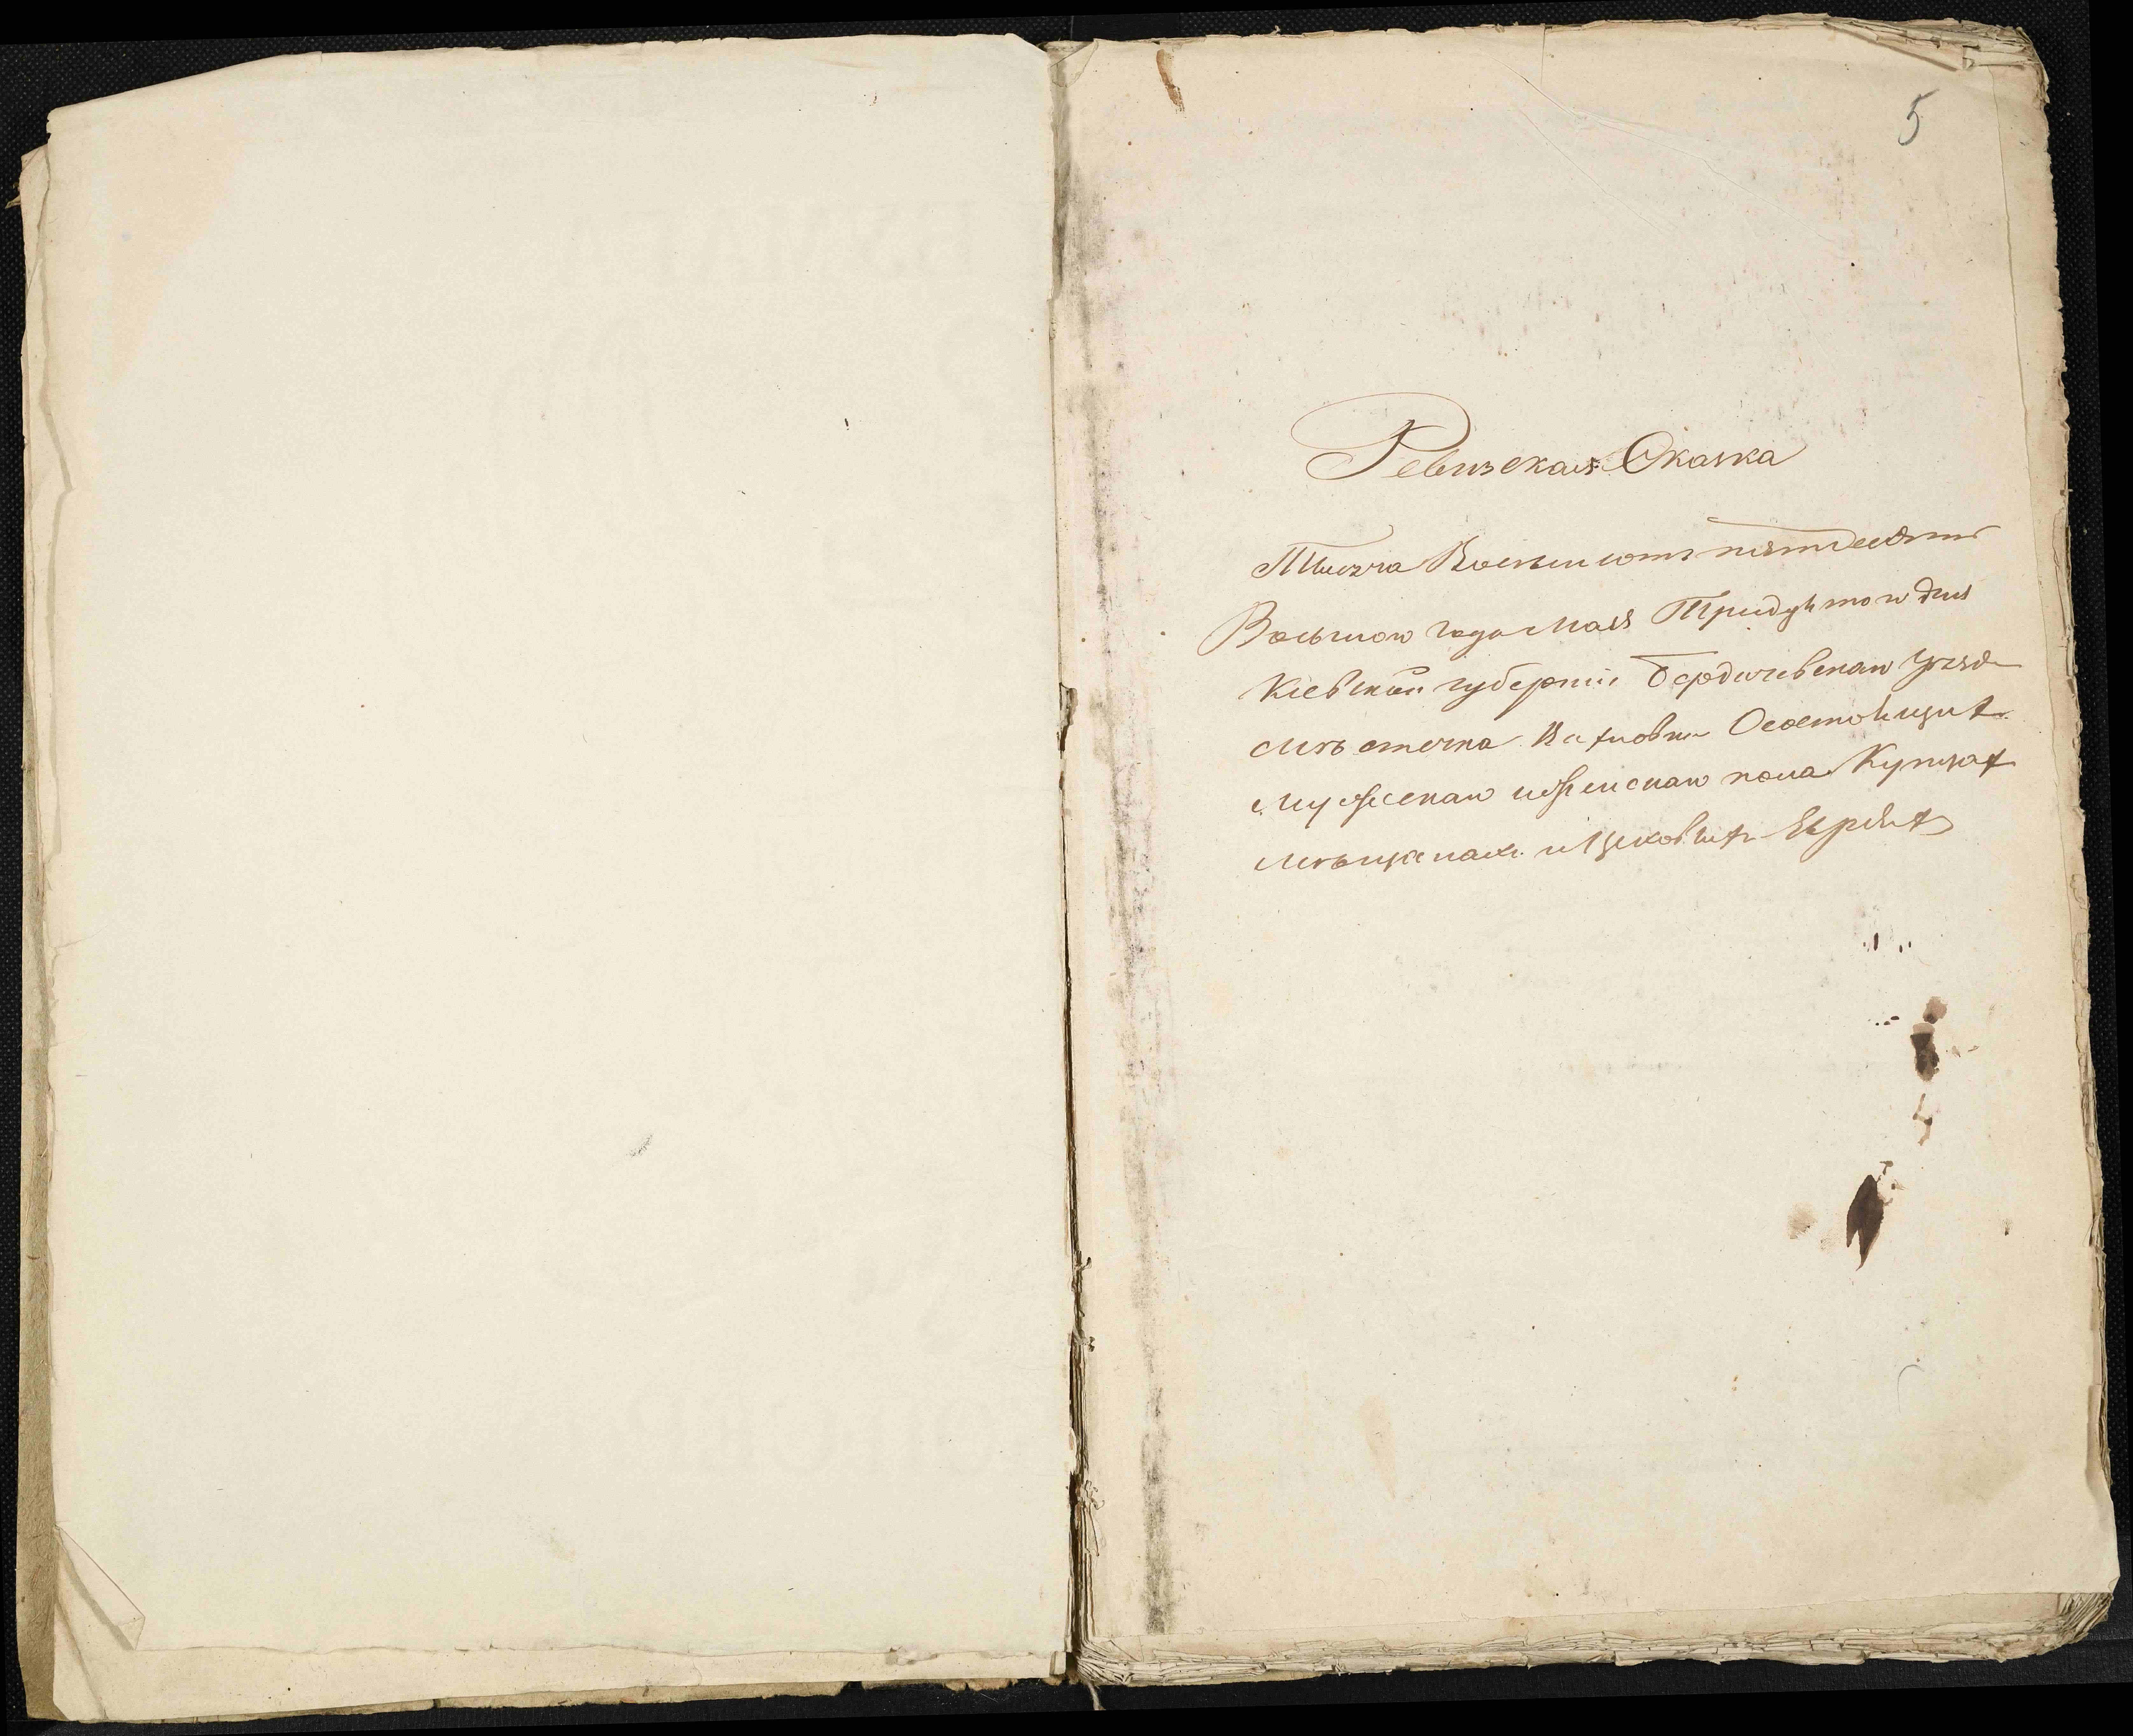 5
Ревизская Сказка
Тысяча Восемьсотъ пятьдесятъ
Восьмого года Мая Тридцатого дня
Кіевской губерніи Бердичевскаго уѣзда
мѣстечка Вахновки О состоящихъ
мужескаго и женскаго пола Купцахъ
мѣщанахъ и Цеховыхъ Евреяхъ